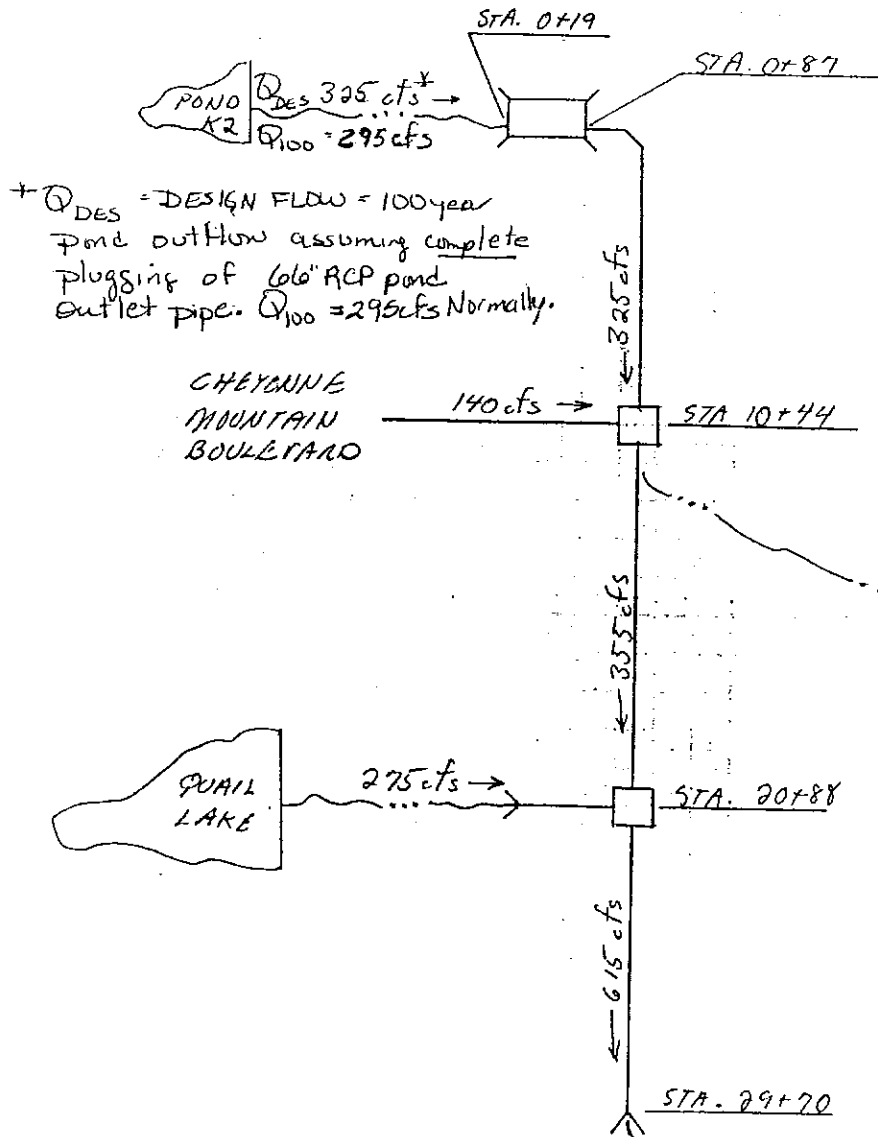 STA. 0+19
STA. 0+87
POND K2
Q_DES 325 cfs*
Q_100 = 295 cfs
* Q_DES = DESIGN FLOW = 100 year
pond outflow assuming complete
plugging of 66" RCP pond
outlet pipe. Q_100 = 295 cfs Normally.
325 cfs
CHEYENNE
MOUNTAIN
BOULEVARD
140 cfs
STA 10+44
355 cfs
QUAIL
LAKE
275 cfs
STA. 20+88
615 cfs
STA. 29+70